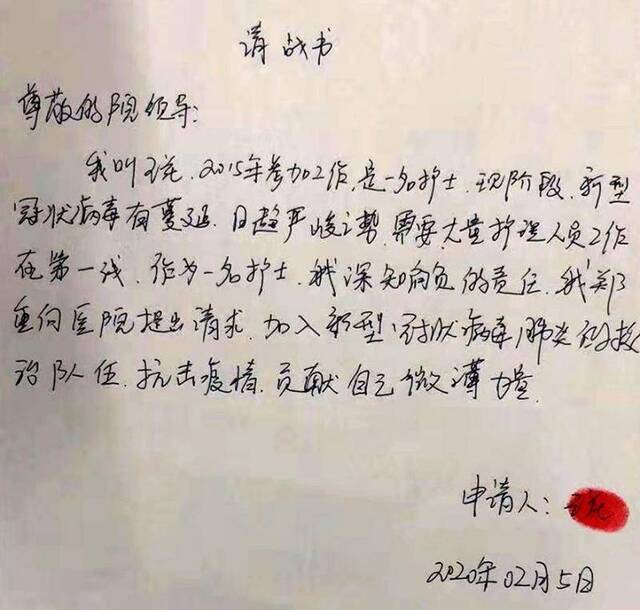 请战书
尊敬的院领导:
我叫王花,2015年参加工作,是一名护士,现阶段,新型
冠状病毒有蔓延,日趋严峻之势,需要大量护理人员工作
在第一线,作为一名护士,我深知肩负的责任,我郑
重向医院提出请求,加入新型冠状病毒肺炎的救
治队伍,抗击疫情,贡献自己微薄力量.
申请人:
2020年02月5日